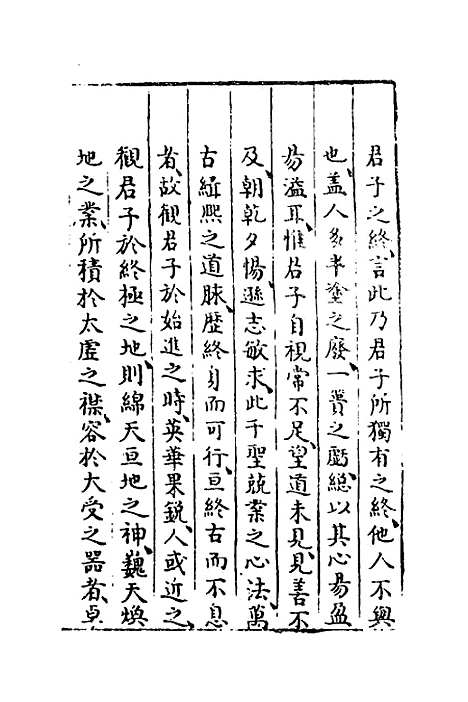 君子之終、言此乃君子所獨有之終、他人不與
也、盖人多半塗之廢、一簣之虧、總以其心易盈
易溢耳、惟君子自視常不足、望道未見、見善不
及、朝乾夕惕、遜志敏求、此千聖兢業之心法、萬
古緝熙之道脉、歷終身而可行、亘終古而不息
者、故觀君子於始進之時、英華果銳、人或近之、
觀君子於終極之地、則綿天亘地之神、巍天煥
地之業、所積於太虛之襟、容於大受之器者、卓